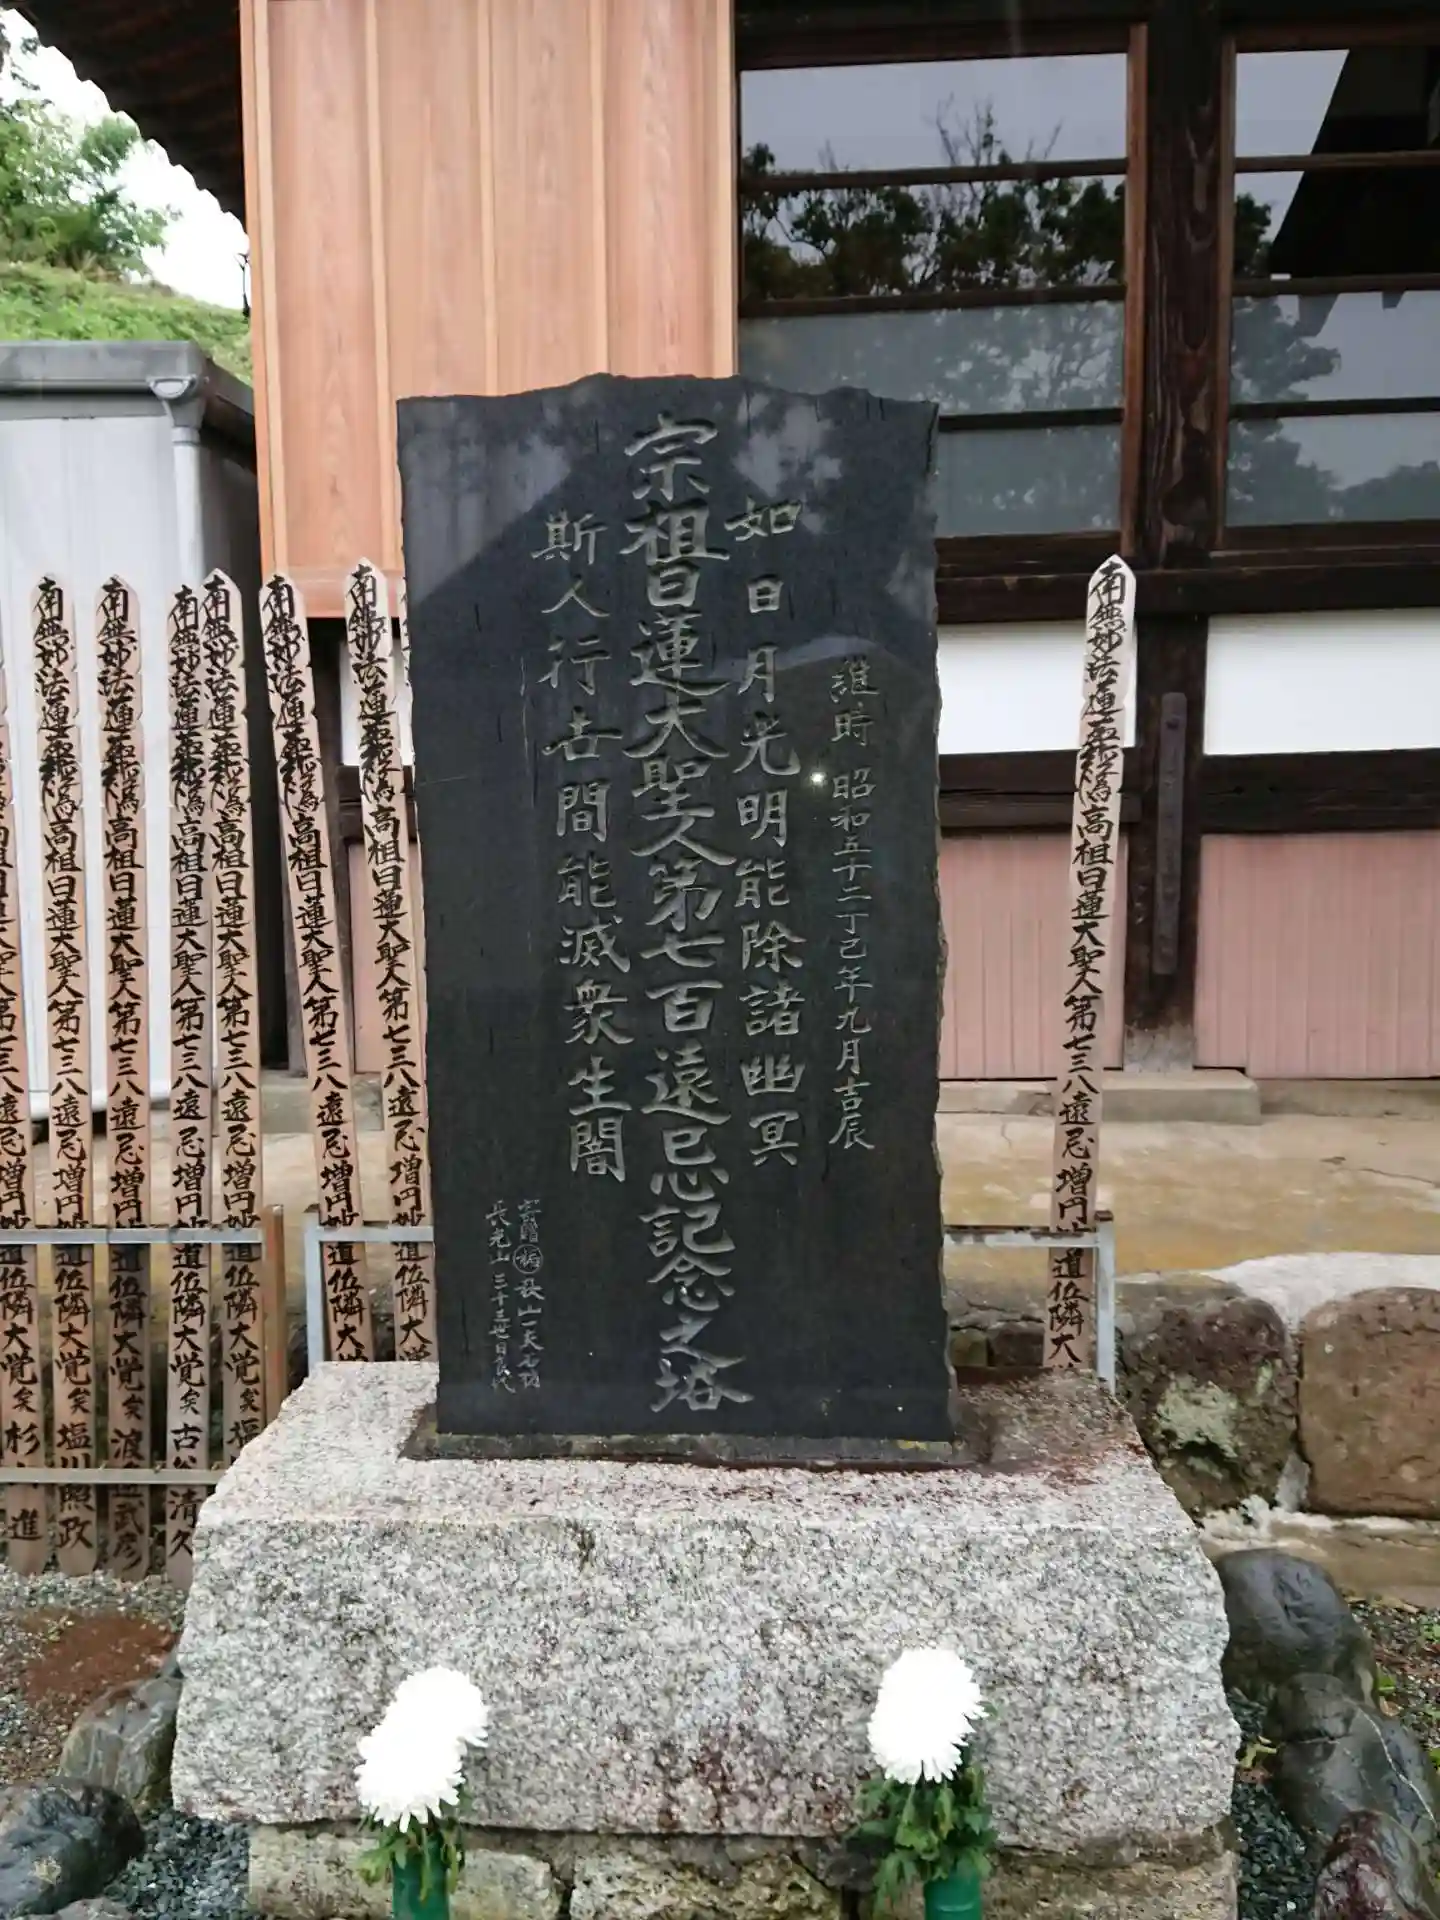 維時 昭和五十二丁己年九月吉辰
如日月光明能除諸幽冥
宗祖日蓮大聖人第七百遠忌記念之塔
斯人行世間能滅衆生闇
寄贈
長光山 三十三世日良代
南無妙法蓮華経為高祖日蓮大聖人第七三八遠忌増円妙道位隣大
南無妙法蓮華経為高祖日蓮大聖人第七三八遠忌増円妙道位隣大
南無妙法蓮華経為高祖日蓮大聖人第七三八遠忌増円妙道位隣大
南無妙法蓮華経為高祖日蓮大聖人第七三八遠忌増円妙道位隣大覚矣 塩
南無妙法蓮華経為高祖日蓮大聖人第七三八遠忌増円妙道位隣大覚矣 古 清久
南無妙法蓮華経為高祖日蓮大聖人第七三八遠忌増円妙道位隣大覚矣 渡 武彦
南無妙法蓮華経為高祖日蓮大聖人第七三八遠忌増円妙道位隣大覚矣 塩川照政
大聖人第七三八遠忌増円妙道位隣大覚矣 杉 進